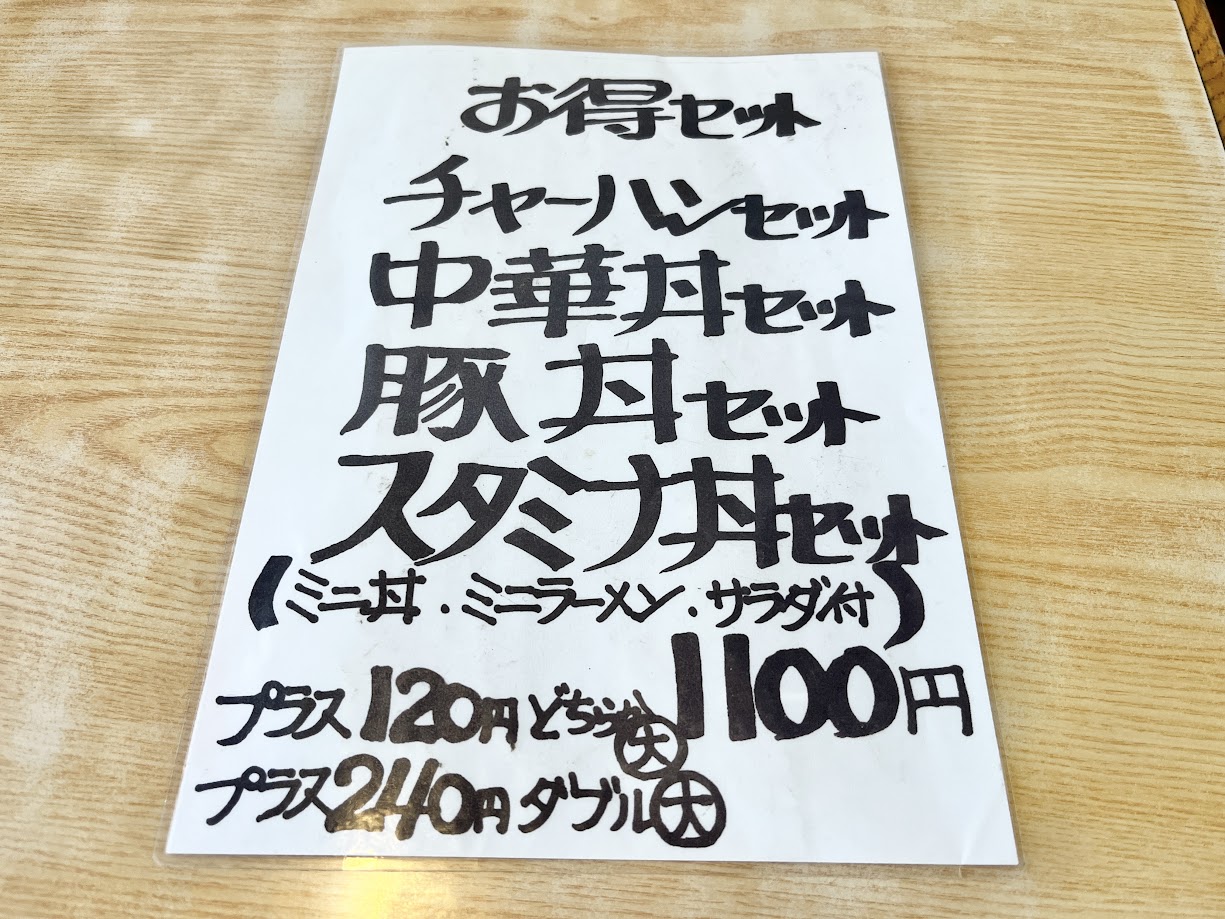 お得セット
チャーハンセット
中華丼セット
豚丼セット
スタミナ丼セット
(ミニ丼・ミニラーメン・サラダ付)
1100円
プラス120円どちらか大
プラス240円ダブル大